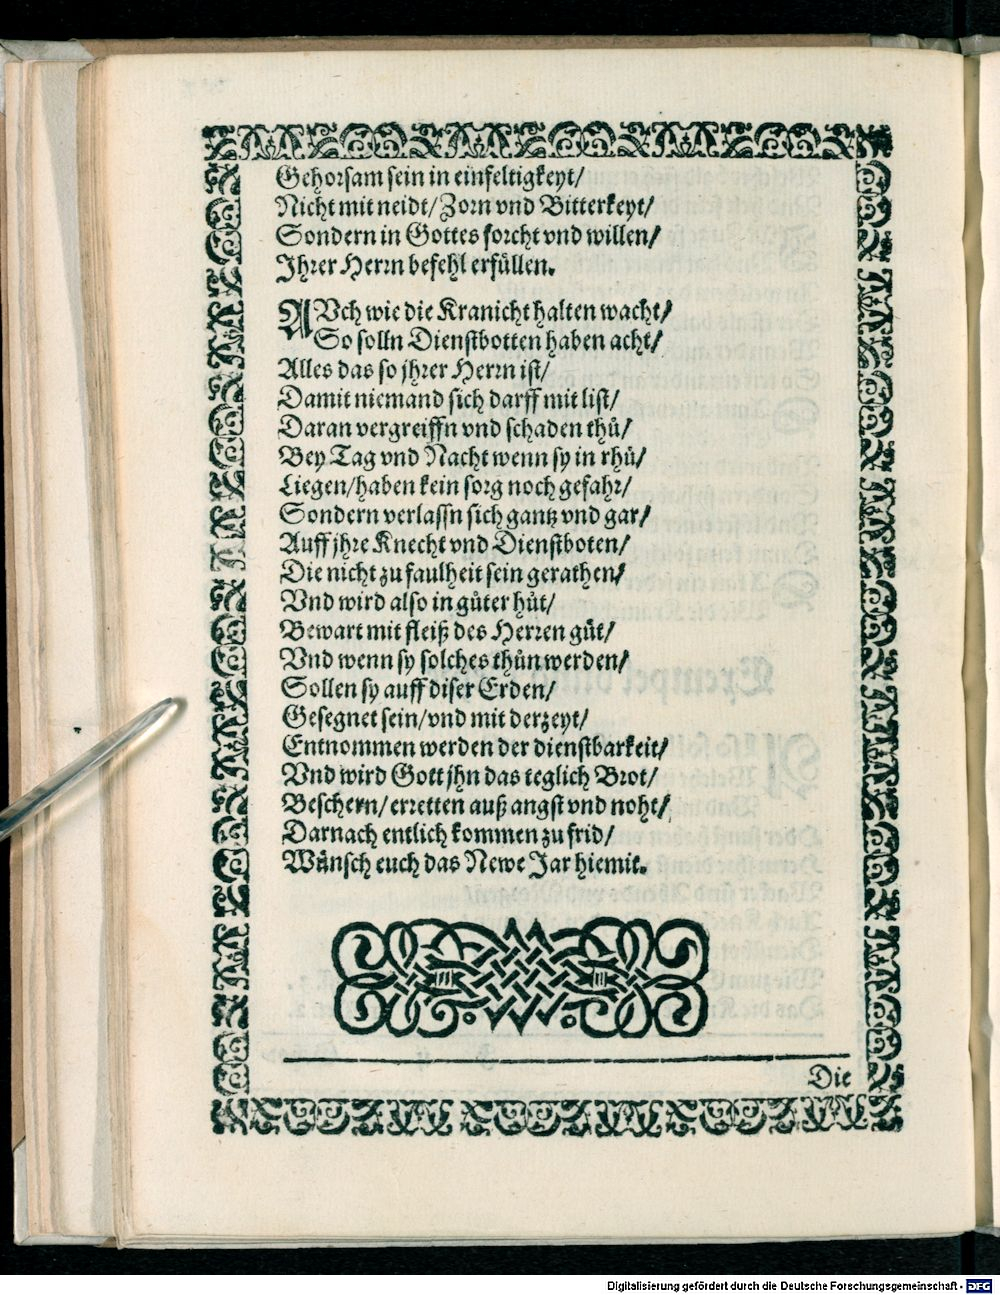 Gehorsam sein in einfeltigkeyt/
Nicht mit neidt/ Zorn vnd Bitterkeyt/
Sondern in Gottes forcht vnd willen/
Jhrer Herrn befehl erfüllen.
AVch wie die Kranicht halten wacht/
So solln Dienstbotten haben acht/
Alles das so jhrer Herrn ist/
Damit niemand sich darff mit list/
Daran vergreiffn vnd schaden thů/
Bey Tag vnd Nacht wenn sy in rhů/
Liegen/ haben kein sorg noch gefahr/
Sondern verlassn sich gantz vnd gar/
Auff jhre Knecht vnd Dienstboten/
Die nicht zu faulheit sein gerathen/
Vnd wird also in gůter hůt/
Bewart mit fleiß des Herren gůt/
Vnd wenn sy solches thůn werden/
Sollen sy auff diser Erden/
Gesegnet sein/ vnd mit der zeyt/
Entnommen werden der dienstbarkeit/
Vnd wird Gott jhn das teglich Brot/
Beschern/ erretten auß angst vnd noht/
Darnach entlich kommen zu frid/
Wünsch euch das Newe Jar hiemit.
Die
Digitalisierung gefördert durch die Deutsche Forschungsgemeinschaft - DFG